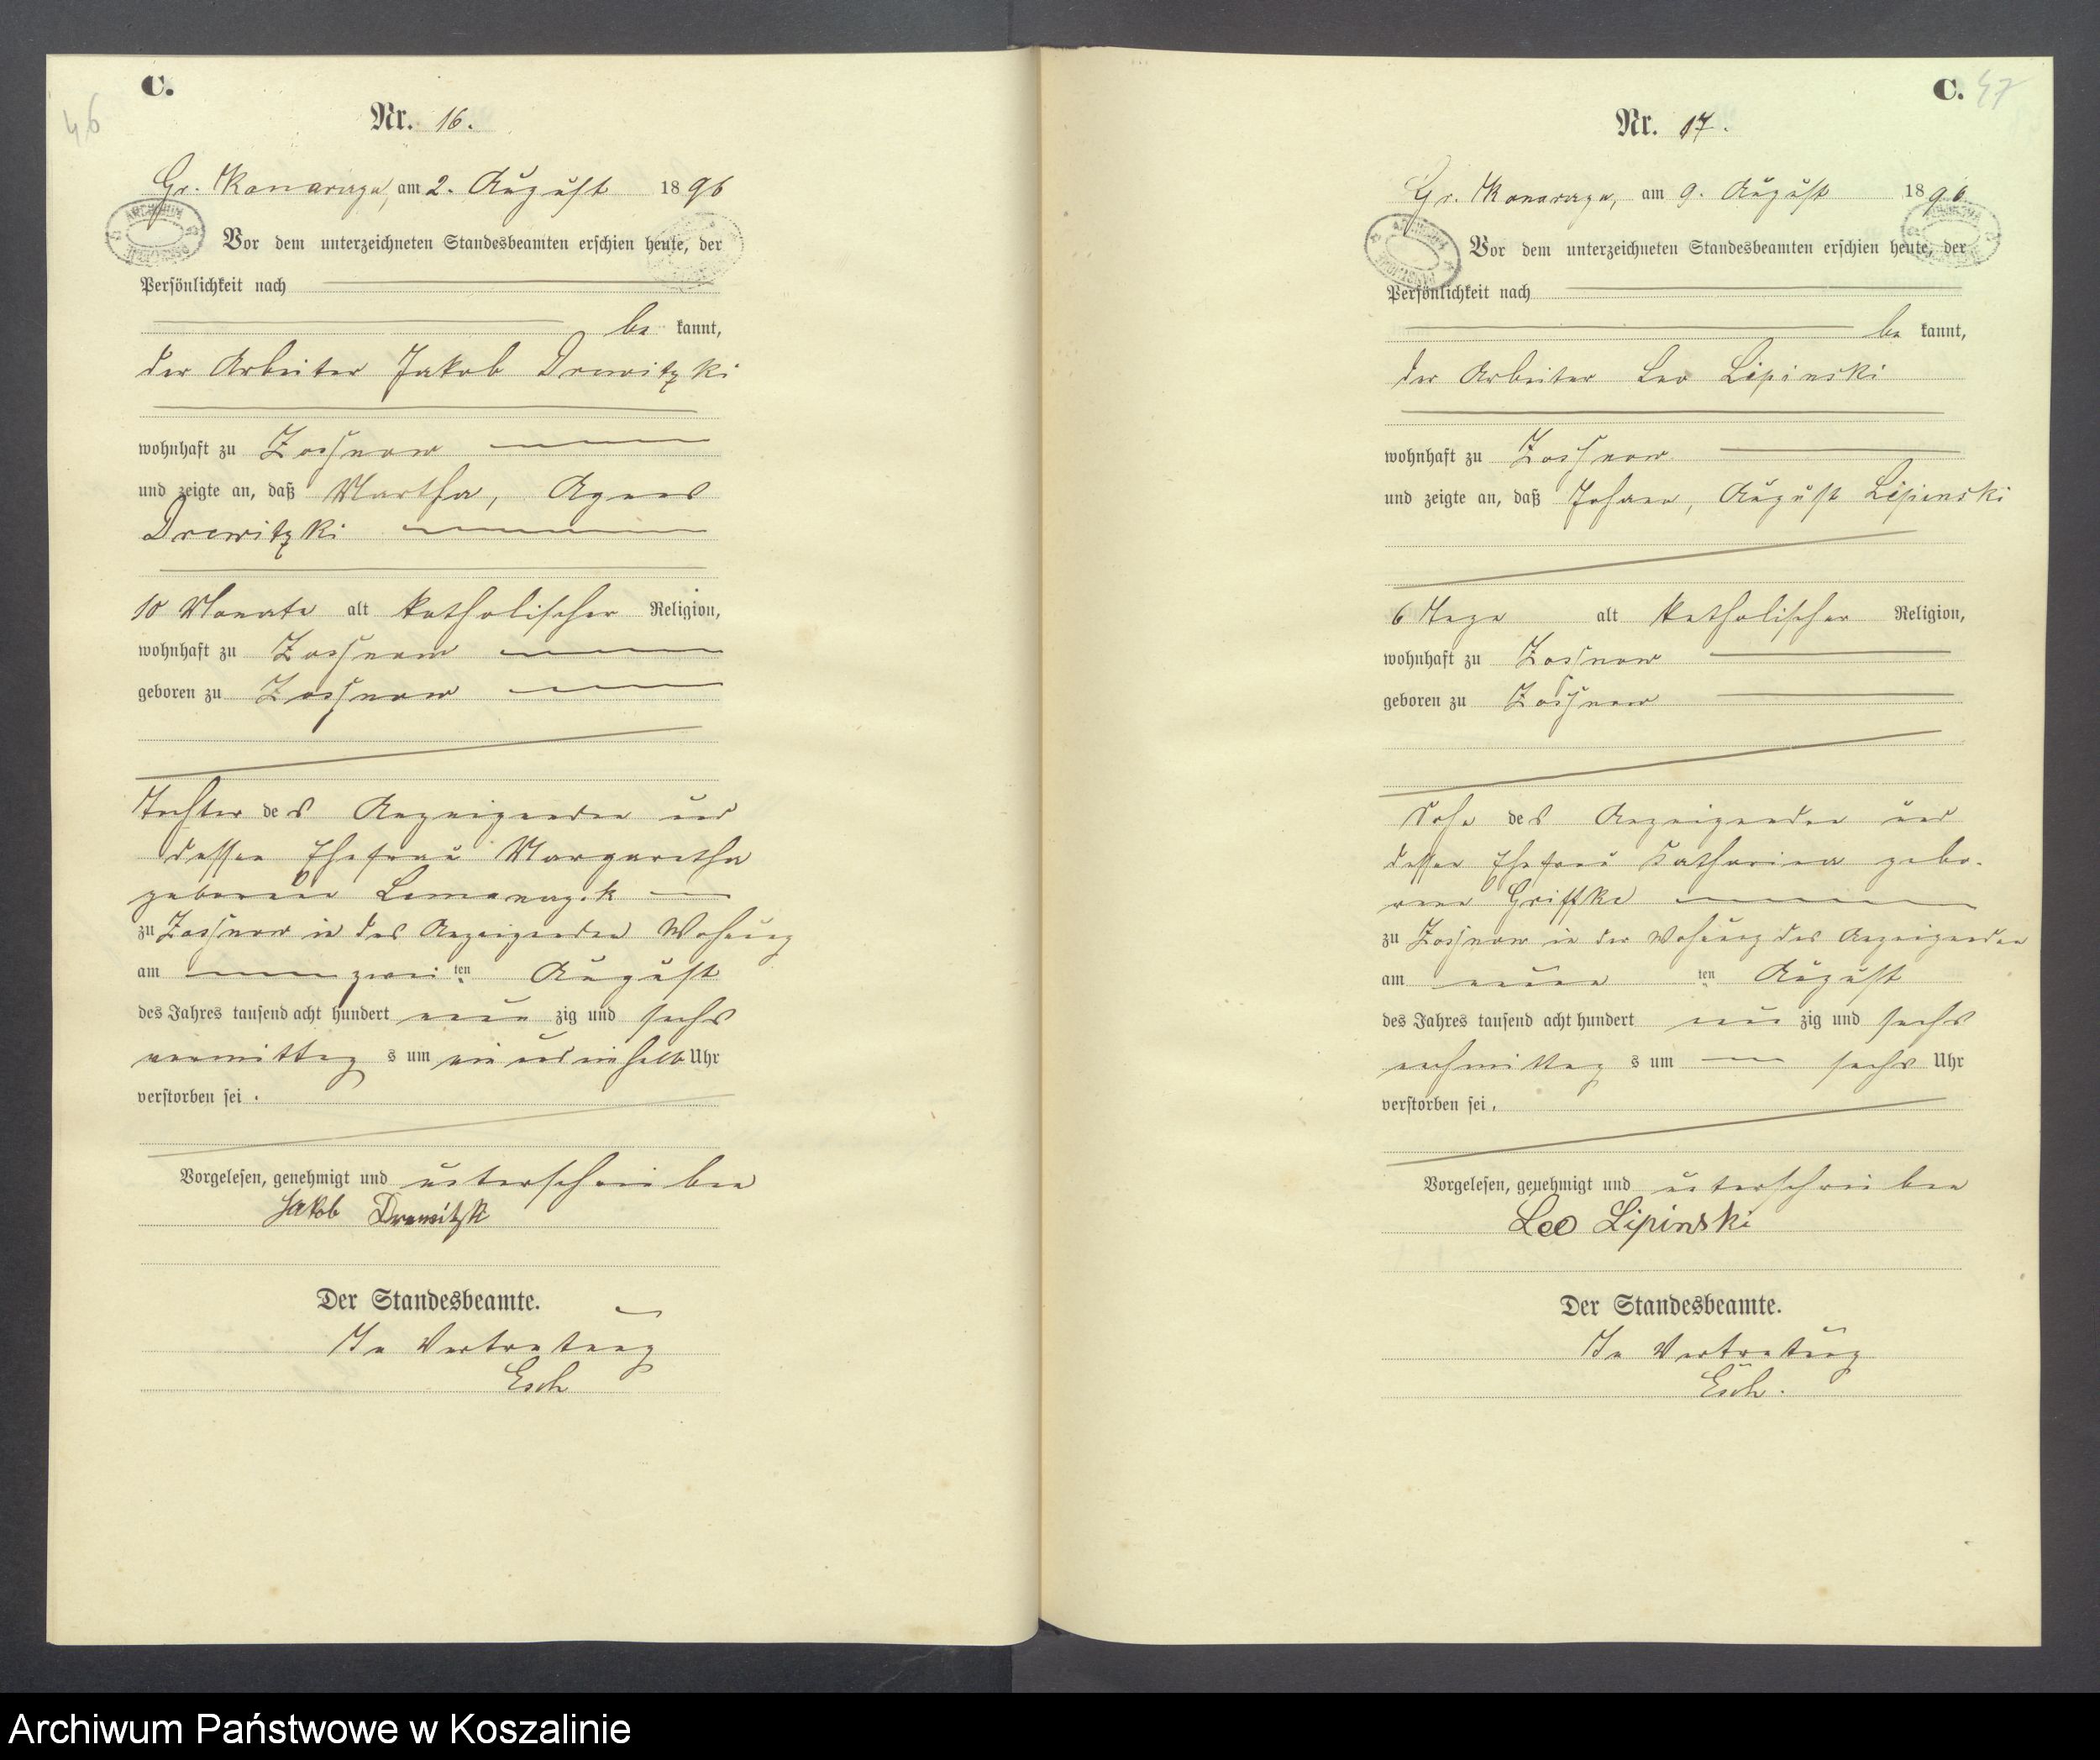 46
C.
Nr. 16.
Gr. Konarczyn, am 2. August 1896
ARCHIWUM
Vor dem unterzeichneten Standesbeamten erschien heute, der
Persönlichkeit nach
be kannt,
der Arbeiter Jakob Drewitzki
wohnhaft zu Zossnow
und zeigte an, daß Martha, Agnes
Drewitzki
10 Monate alt katholischer Religion,
wohnhaft zu Zossnow
geboren zu Zossnow
Tochter des Anzeigenden und
dessen Ehefrau Margaretha
geborene
zu Zossnow in des Anzeigenden Wohnung
am zwei ten August
des Jahres tausend acht hundert neun zig und sechs
vormittag s um ein und ein halb Uhr
verstorben sei.
Vorgelesen, genehmigt und unterschrieben
Jakob Drewitzki
Der Standesbeamte.
In Vertretung
Esch
C. 47
Nr. 17.
Gr. Konarczyn, am 9. August 1896
ARCHIWUM
Vor dem unterzeichneten Standesbeamten erschien heute, der
Persönlichkeit nach
be kannt,
der Arbeiter Leo Lipinski
wohnhaft zu Zossnow
und zeigte an, daß Johann, August Lipinski
6 Tage alt katholischer Religion,
wohnhaft zu Zossnow
geboren zu Zossnow
Sohn des Anzeigenden und
dessen Ehefrau Katharina gebo-
rene Griffke
zu Zossnow in der Wohnung des Anzeigenden
am neun ten August
des Jahres tausend acht hundert neun zig und sechs
nachmittag s um sechs Uhr
verstorben sei.
Vorgelesen, genehmigt und unterschrieben
Leo Lipinski
Der Standesbeamte.
In Vertretung
Esch.
Archiwum Państwowe w Koszalinie